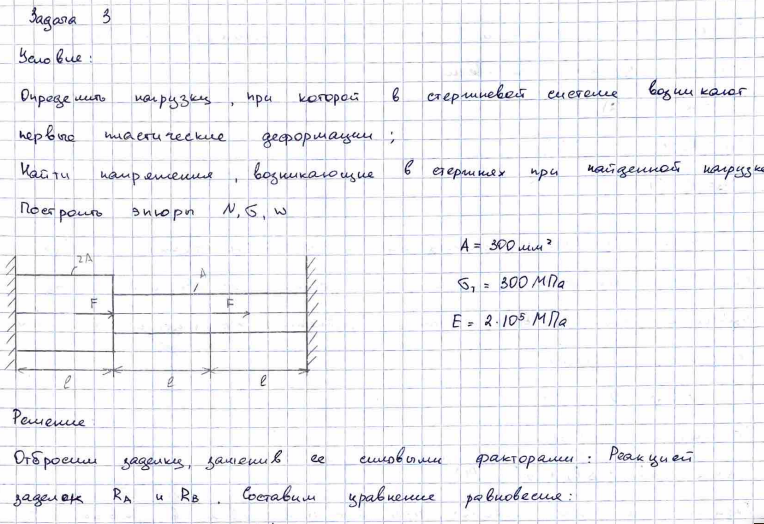 Задача 3
Условие:
Определить нагрузку, при которой в стержневой системе возникают
первые пластические деформации;
Найти напряжения, возникающие в стержнях при найденной нагрузке
Построить эпюры N, σ, w
2A
A
F
F
l
l
l
A = 300 мм²
σт = 300 МПа
E = 2·10⁵ МПа
Решение
Отбросим заделку, заменив ее силовыми факторами: Реакцией
заделок RA и RB. Составим уравнение равновесия: